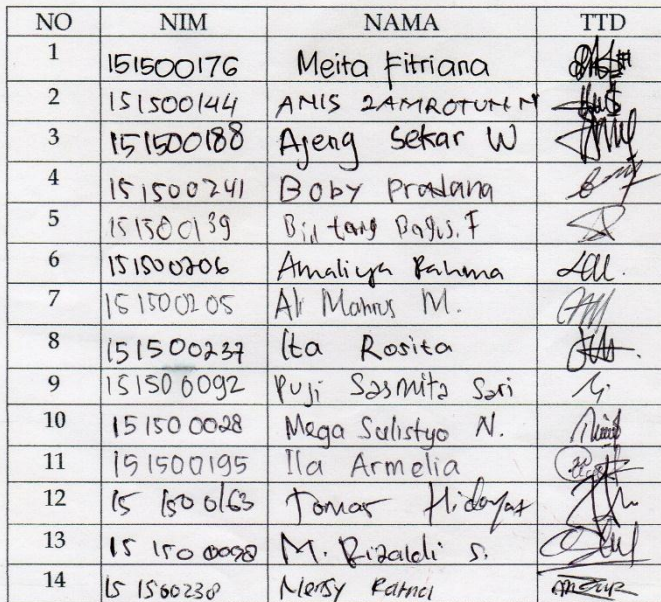 NO NIM NAMA TTD
1 151500176 Meita Fitriana
2 151500144 ANIS ZAMROTUN N
3 151500188 Ajeng Sekar W
4 151500241 Boby Pradana
5 151500139 Bintang Bagus. F
6 151500206 Amaliya Rahma
7 151500205 Ali Mahrus M.
8 151500237 Ita Rosita
9 151500092 Puji Sasmita Sari
10 151500028 Mega Sulistyo N.
11 151500195 Ila Armelia
12 151500163 Tomas Hidayat
13 151500098 M. Rizaldi S.
14 151500238 Nensy Ratna